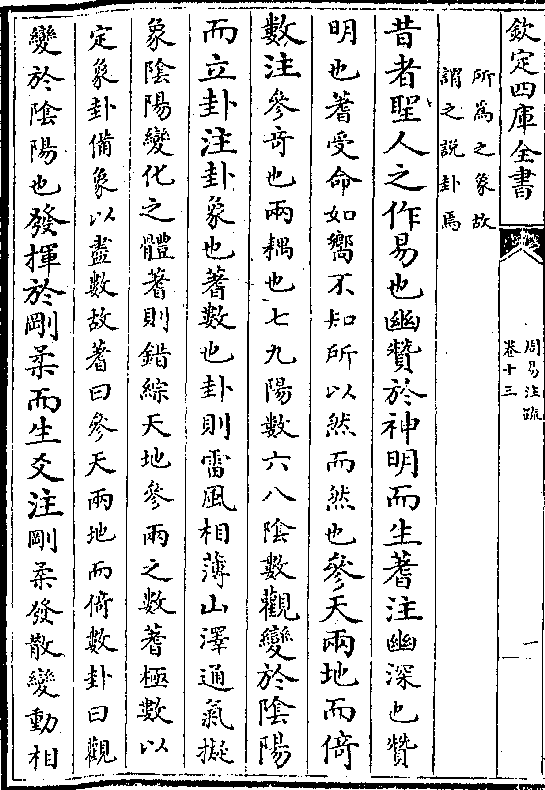 欽定四庫全書
周易注疏
卷十三
一
所為之象故
謂之說卦焉
昔者聖人之作易也幽贊於神明而生蓍注幽深也贊
明也蓍受命如嚮不知所以然而然也參天兩地而倚
數注參奇也兩耦也七九陽數六八陰數觀變於陰陽
而立卦注卦象也蓍數也卦則雷風相薄山澤通氣擬
象陰陽變化之體蓍則錯綜天地參兩之數蓍極數以
定象卦備象以盡數故蓍曰參天兩地而倚數卦曰觀
變於陰陽也發揮於剛柔而生爻注剛柔發散變動相